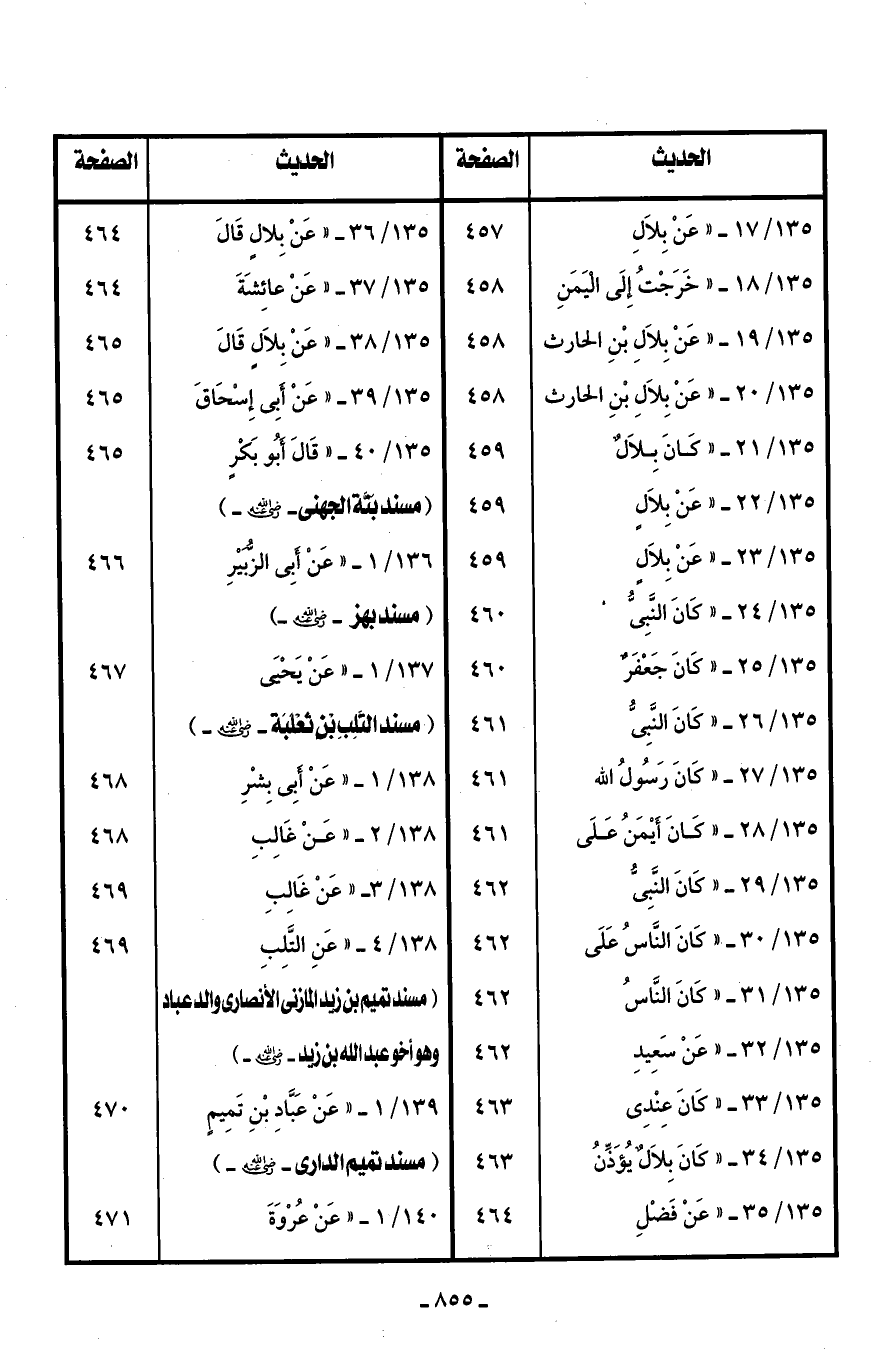 الحديث	الصفحة
١٣٥/ ١٧ ـ « عَنْ بِلاَلِ	٤٥٧
١٣٥/ ١٨ ـ « خَرَجْتُ إِلَى الْيَمَنِ	٤٥٨
١٣٥/ ١٩ ـ « عَنْ بِلاَلِ بْنِ الحارث	٤٥٨
١٣٥/ ٢٠ ـ « عَنْ بِلاَلِ بْنِ الحارث	٤٥٨
١٣٥/ ٢١ ـ « كَـانَ بِـلاَلٌ	٤٥٩
١٣٥/ ٢٢ ـ « عَنْ بِلاَلٍ	٤٥٩
١٣٥/ ٢٣ ـ « عَنْ بِلاَلٍ	٤٥٩
١٣٥/ ٢٤ ـ « كَانَ النَّبِىُّ	٤٦٠
١٣٥/ ٢٥ ـ « كَانَ جَعْفَرٌ	٤٦٠
١٣٥/ ٢٦ ـ « كَانَ النَّبِىُّ	٤٦١
١٣٥/ ٢٧ ـ « كَانَ رَسُولُ الله	٤٦١
١٣٥/ ٢٨ ـ « كَـانَ أَيْمَنُ عَـلَى	٤٦١
١٣٥/ ٢٩ ـ « كَانَ النَّبِىُّ	٤٦٢
١٣٥/ ٣٠ ـ « كَانَ النَّاسُ عَلَى	٤٦٢
١٣٥/ ٣١ ـ « كَانَ النَّاسُ	٤٦٢
١٣٥/ ٣٢ ـ « عَنْ سَعِيدِ	٤٦٢
١٣٥/ ٣٣ ـ « كَانَ عِنْدِى	٤٦٣
١٣٥/ ٣٤ ـ « كَانَ بِلاَلٌ يُؤَذِّنُ	٤٦٣
١٣٥/ ٣٥ ـ « عَنْ فَضْلِ	٤٦٤
الحديث	الصفحة
١٣٥/ ٣٦ ـ « عَنْ بِلالٍ قَالَ	٤٦٤
١٣٥/ ٣٧ ـ « عَنْ عائِشَةَ	٤٦٤
١٣٥/ ٣٨ ـ « عَنْ بِلاَلٍ قَالَ	٤٦٥
١٣٥/ ٣٩ ـ « عَنْ أَبِى إِسْحَاقَ	٤٦٥
١٣٥/ ٤٠ ـ « قَالَ أَبُو بَكْرٍ	٤٦٥
( مسند بنَّة الجهنى ـ رضي الله عنه ـ )
١٣٦/ ١ ـ « عَنْ أَبِى الزُّبَيْرِ	٤٦٦
( مسند بهز ـ رضي الله عنه ـ )
١٣٧/ ١ ـ « عَنْ يَحْيَى	٤٦٧
( مسند التَّلِبِ بْنِ ثَعْلَبَة ـ رضي الله عنه ـ )
١٣٨/ ١ ـ « عَنْ أَبِى بِشْرِ	٤٦٨
١٣٨/ ٢ ـ « عَـنْ غَالِبِ	٤٦٨
١٣٨/ ٣ ـ « عَنْ غَالِبِ	٤٦٩
١٣٨/ ٤ ـ « عَنِ التَّلِبِ	٤٦٩
( مسند تميم بن زيد المازنى الأنصارى والد عباد
وهو أخو عبد الله بن زيد ـ رضي الله عنه ـ )
١٣٩/ ١ ـ « عَنْ عَبَّادِ بْنِ تَمِيمٍ	٤٧٠
( مسند تميم الدارى ـ رضي الله عنه ـ )
١٤٠/ ١ ـ « عَنْ عُرْوَةَ	٤٧١
ـ ٨٥٥ ـ